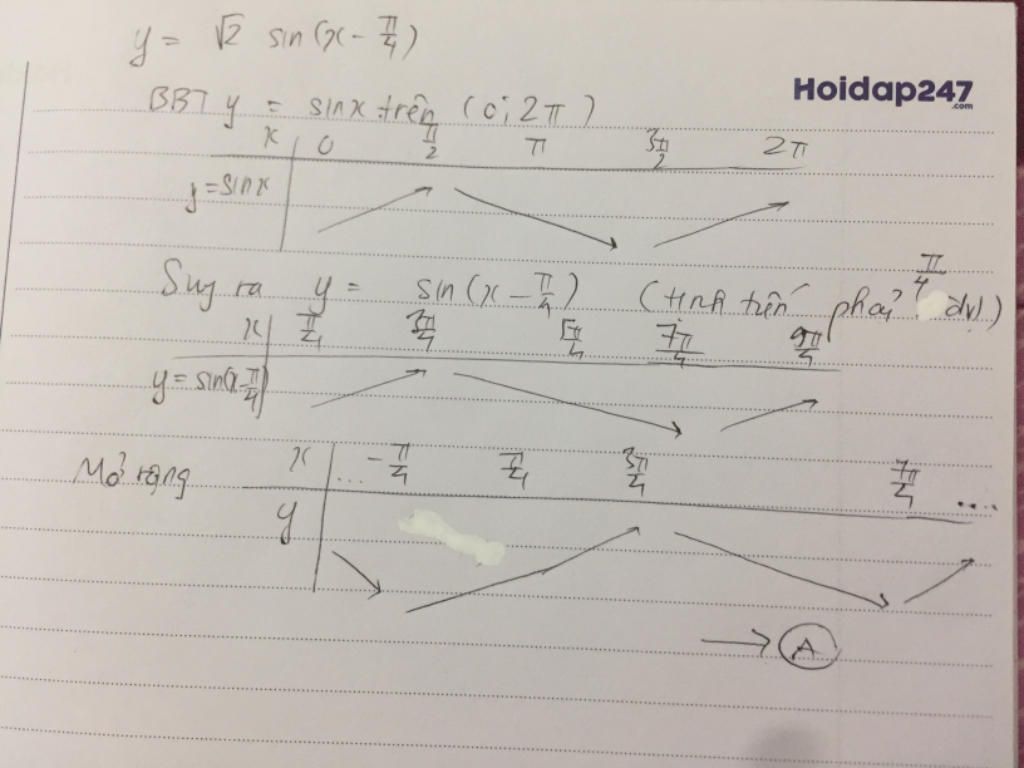 y = √2 sin(x - π/4)
Hoidap247
.com
BBT y = sinx trên (0; 2π)
x 0 π/2 π 3π/2 2π
y = sinx
π/4
Suy ra y = sin(x - π/4) (tịnh trên phải đv)
x π/4 3π/4 5π/4 7π/4 9π/4
y = sin(x - π/4)
Mở rộng x ... -π/4 π/4 3π/4 7π/4 ....
y
→ A